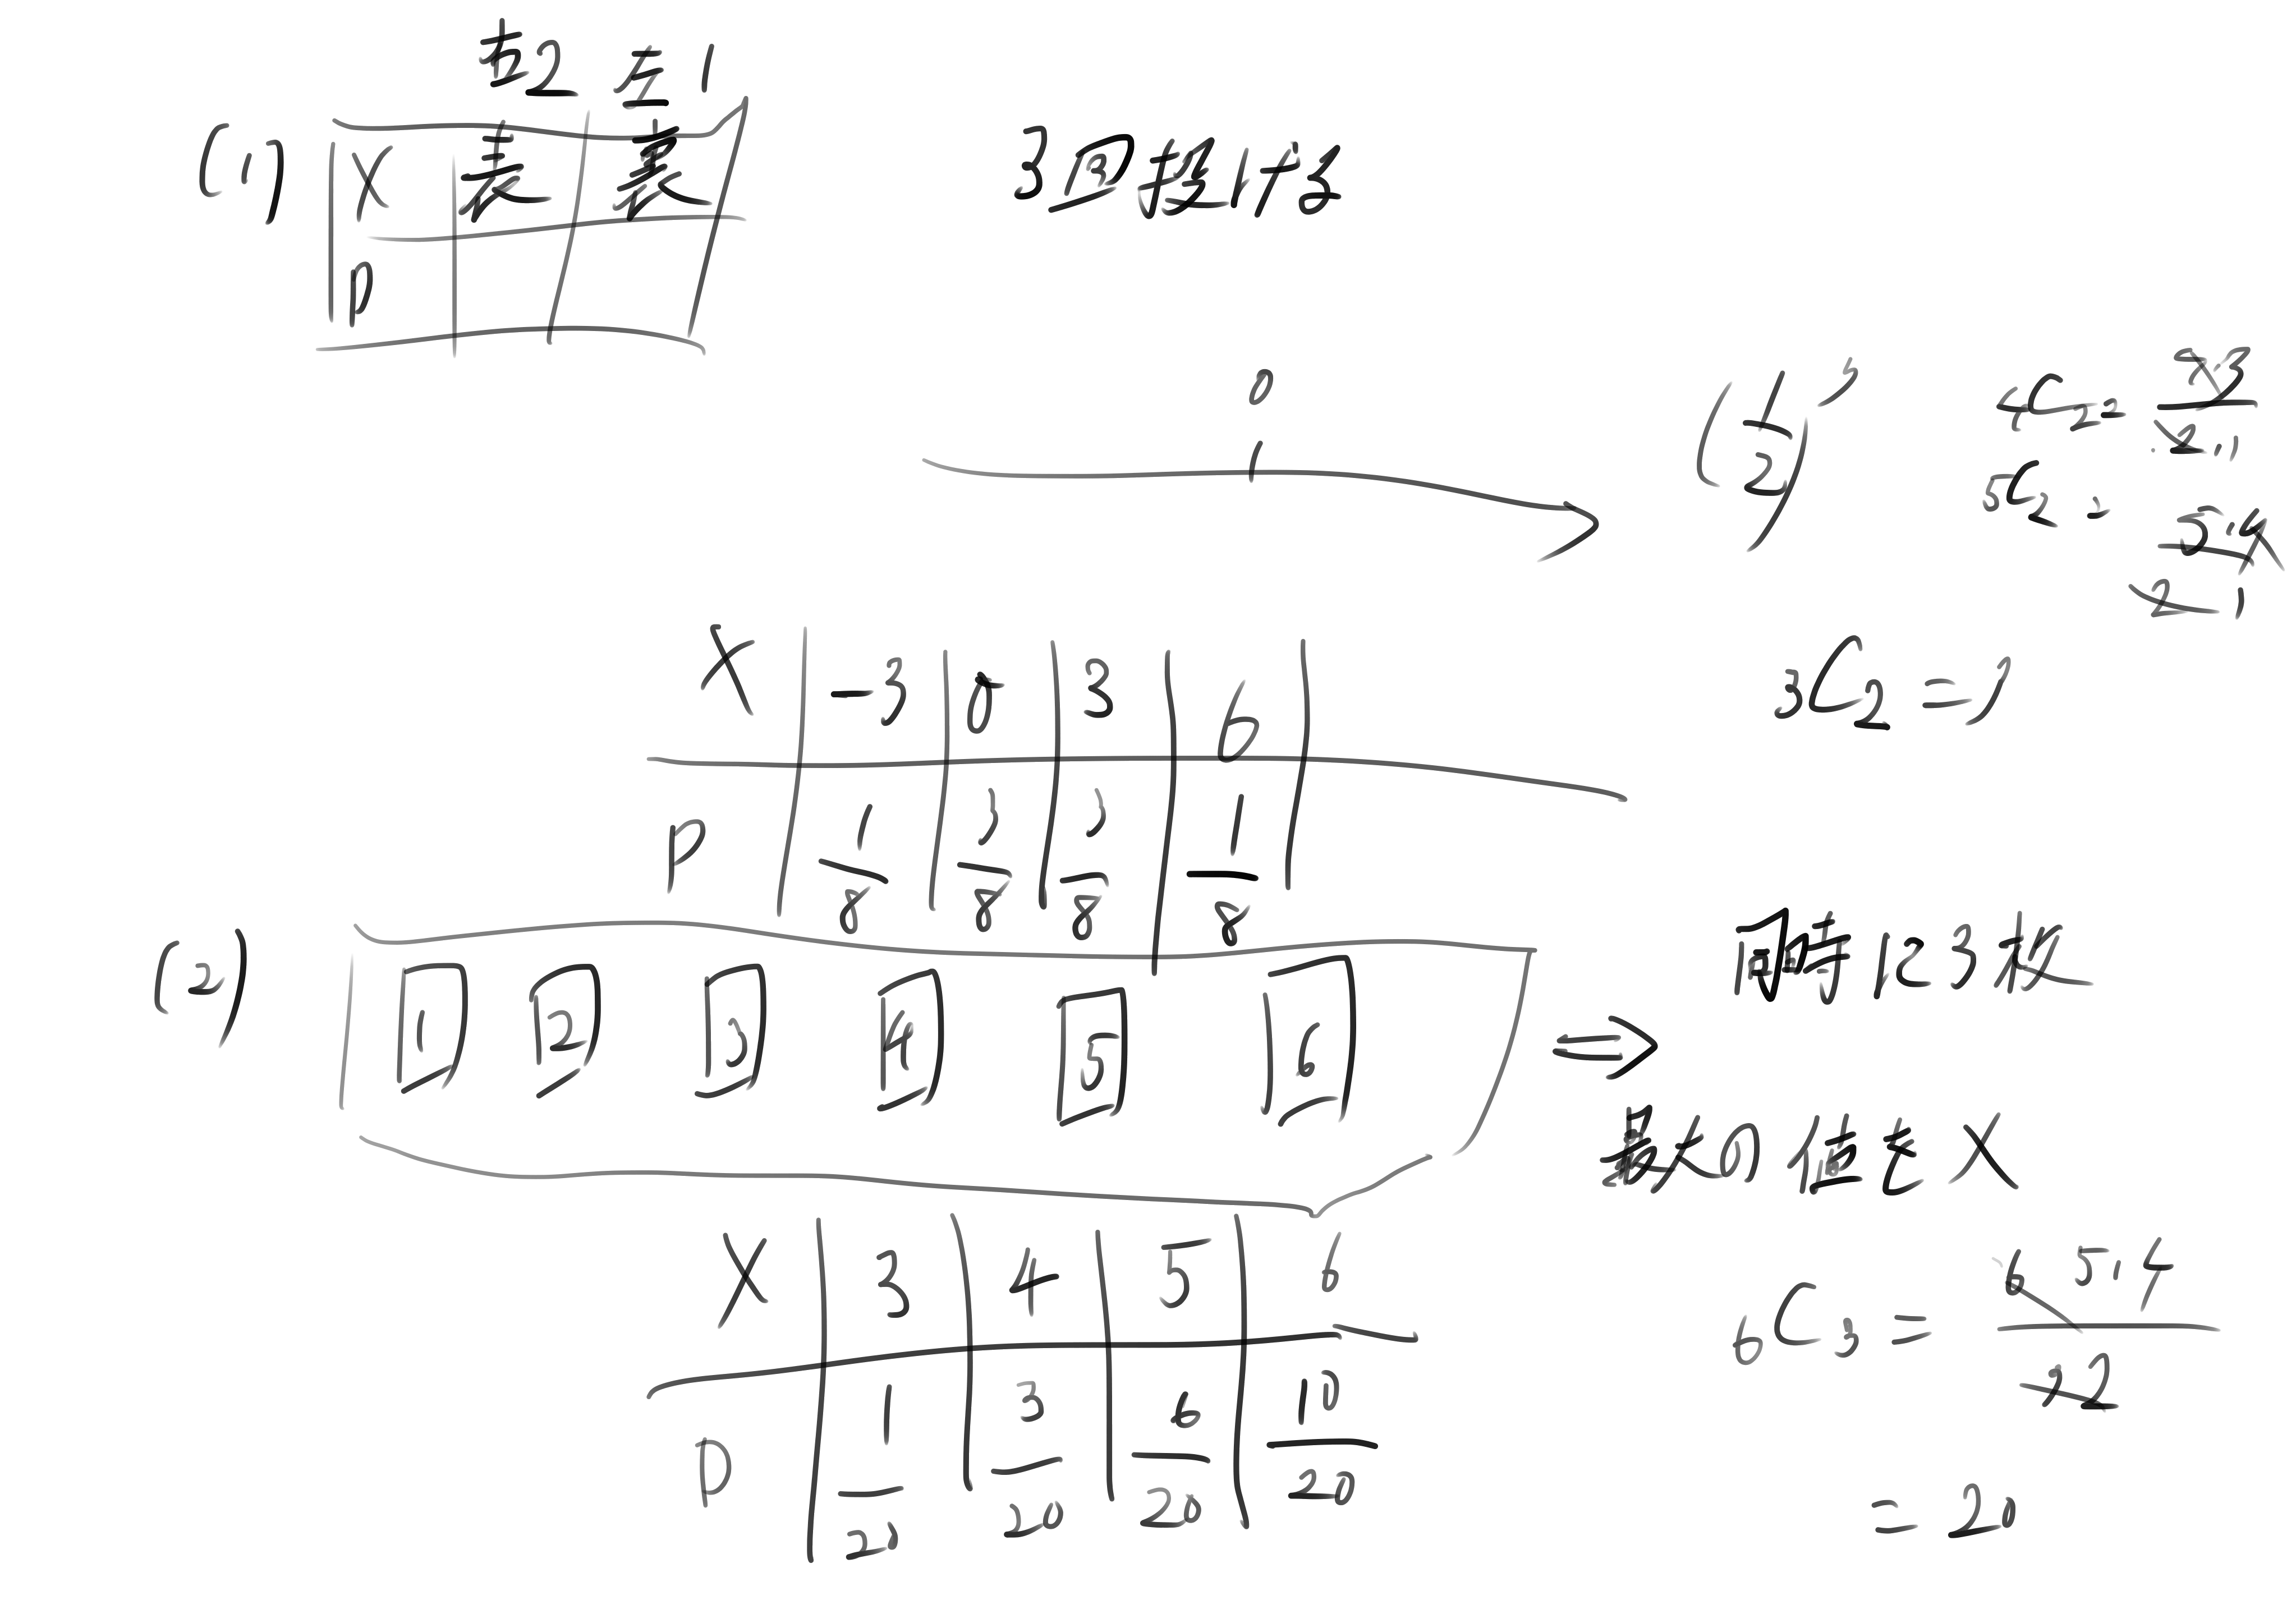 右2 左1
(1) X 表 裏
P
3回投げる
0
(1/2)^3
4C2 = 4·3/2·1
5C2 = 5·4/2·1
3C2 = 3
X -3 0 3 6
P 1/8 3/8 3/8 1/8
(2) 1 2 3 4 5 6 ⇒
同時に3枚
最大の値をX
X 3 4 5 6
P 1/20 3/20 6/20 10/20
6C3 = 6 5·4/3 2
= 20